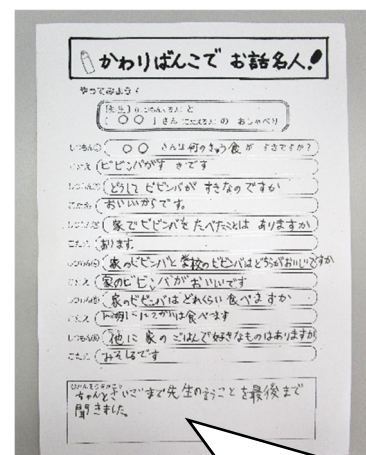 かわりばんこで お話名人!
やってみよう!
先生 と
〔 ○○ 〕さん の おしゃべり
しつもん① ○○ さんは何のきゅう食が すきですか?
こたえ ビビンバがすきです
しつもん② どうして ビビンバが すきなのですか
こたえ おいしいからです。
しつもん③ 家でビビンバを たべたことは ありますか
こたえ あります。
しつもん④ 家のビビンバと学校のビビンバはどちらがおいしいですか
こたえ 家のビビンバがおいしいです
しつもん⑤ 家のビビンバはどれくらい食べますか
こたえ 食べます
しつもん⑥ 他に家のごはんで好きなものはありますか
こたえ みそしるです
ちゃんとさいごまで先生の言うことを最後まで
聞きました。